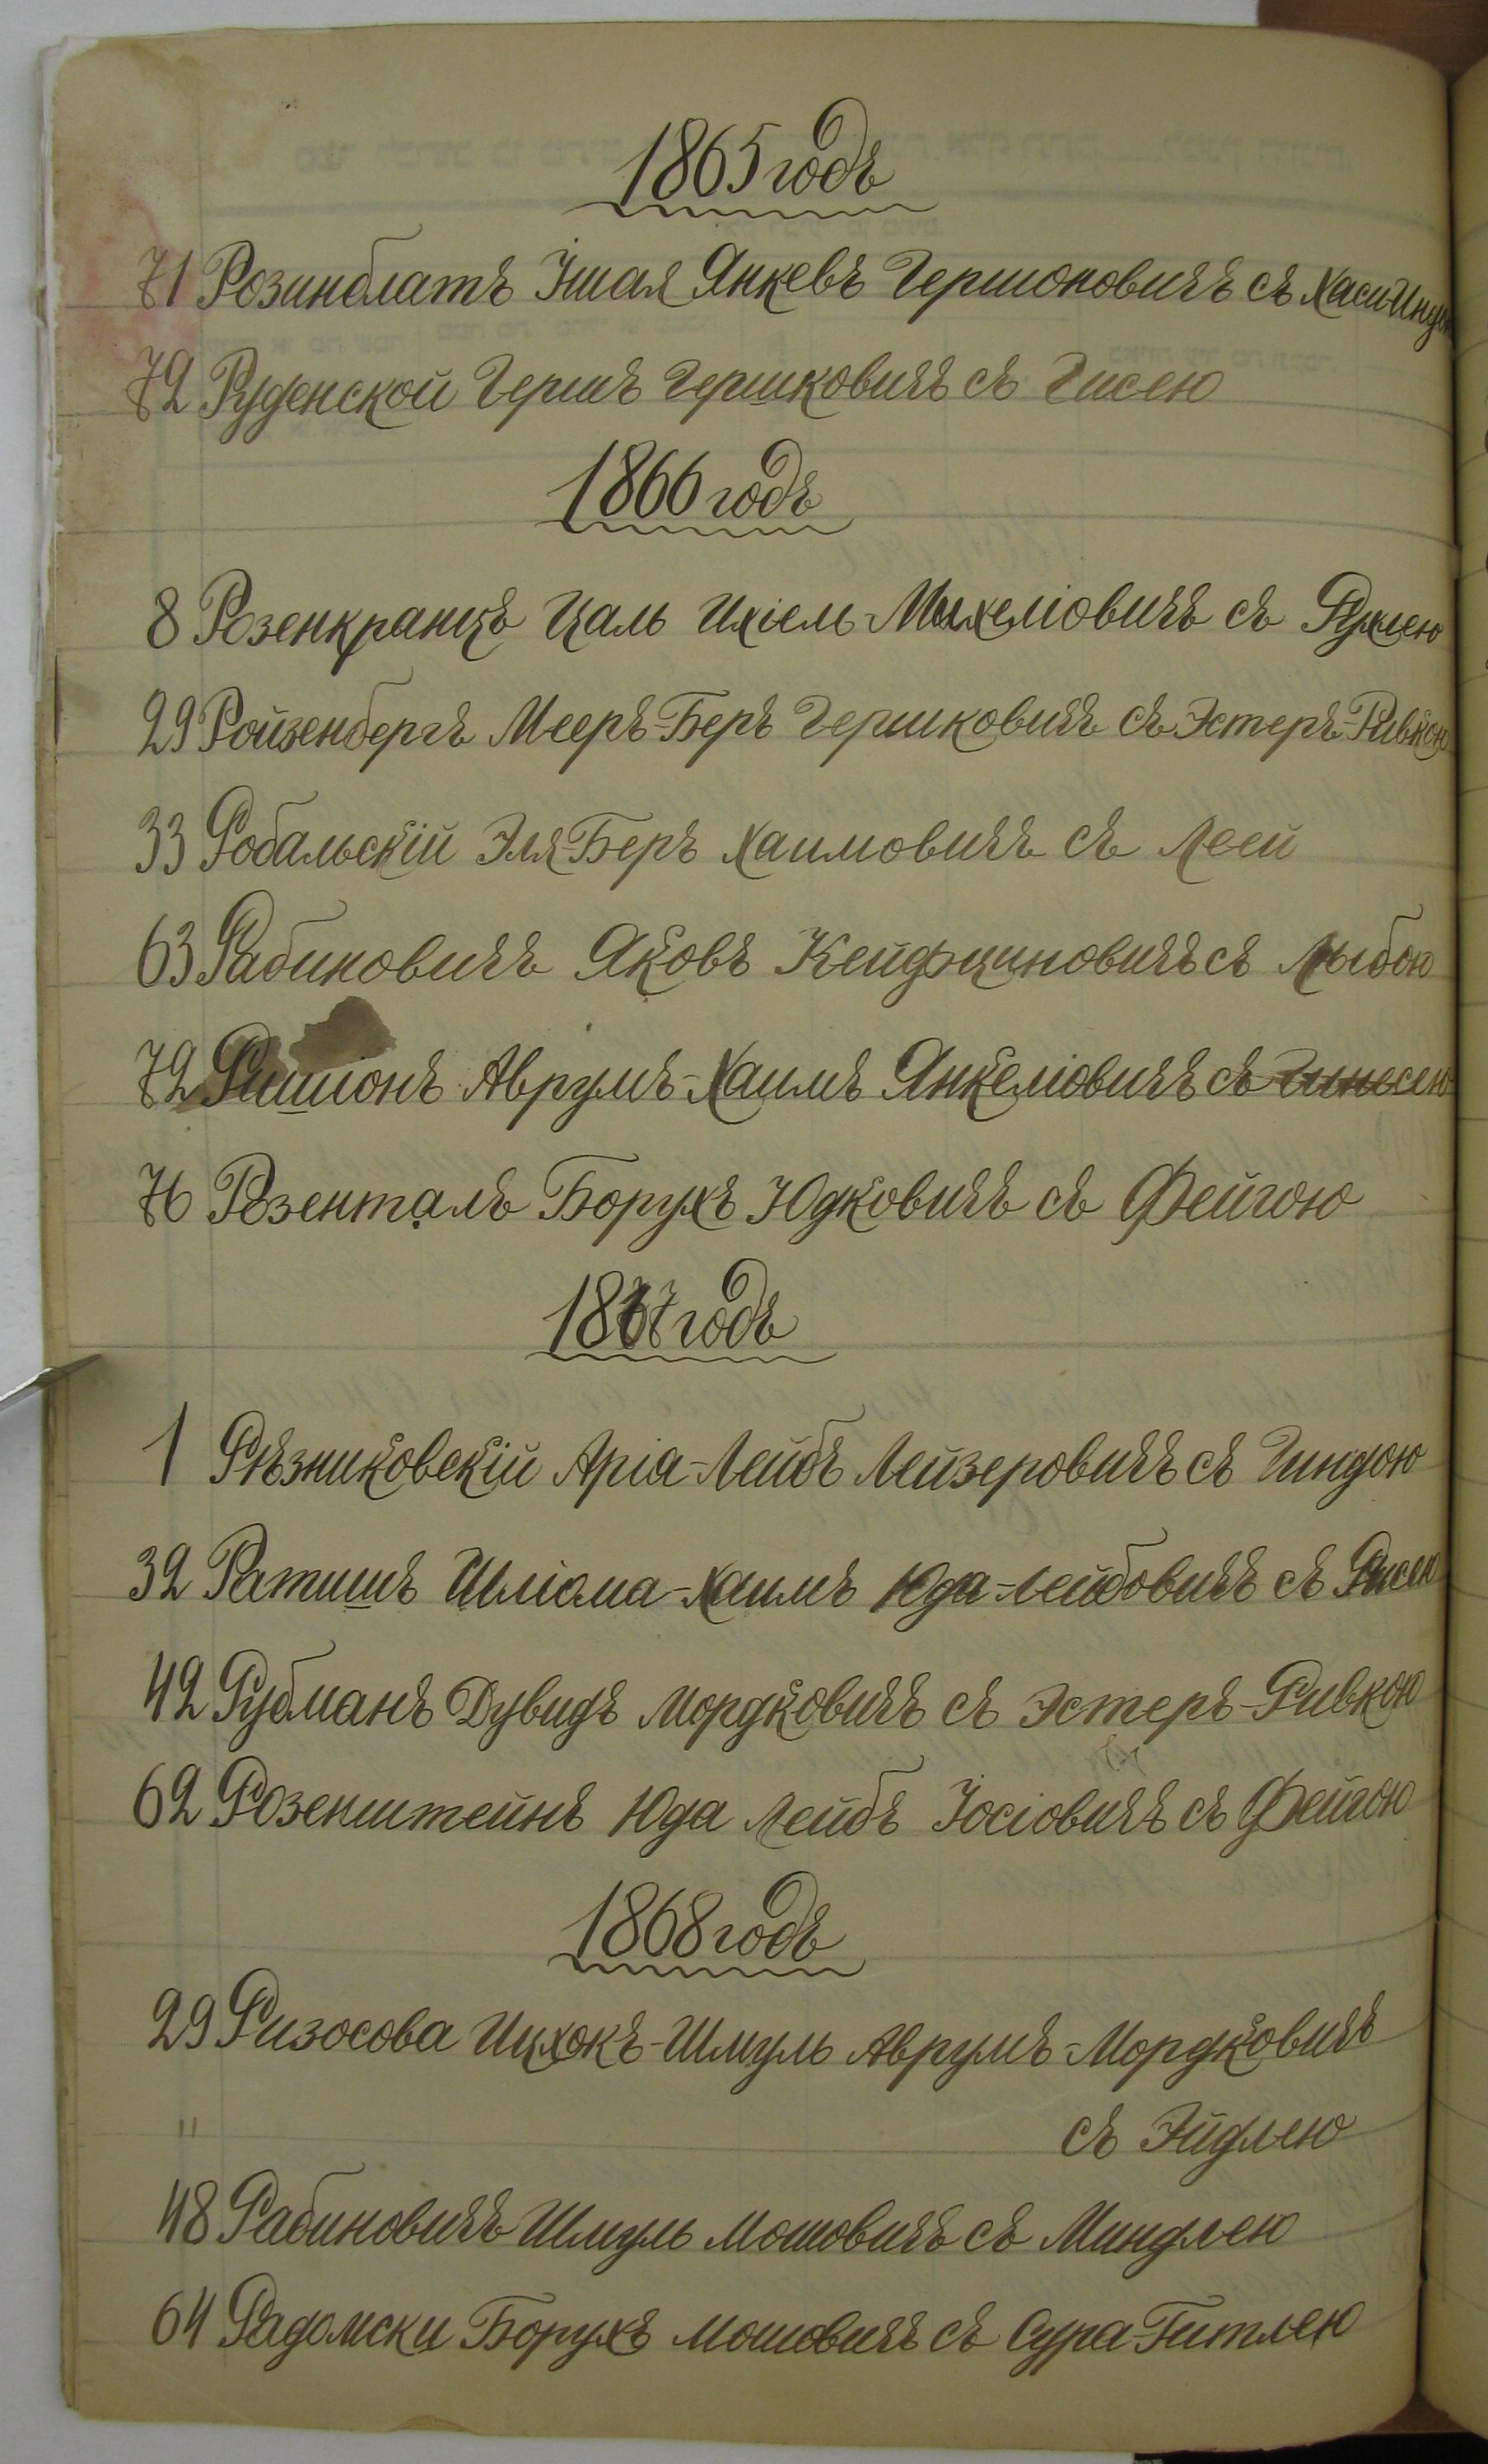 1865 годъ
71 Розинблатъ Iшая Янкевъ Гершоновичъ съ Хаси-Индою
72 Руденской Гершъ Гершковичъ съ Гисею
1866 годъ
8 Розенкранцъ Цаль Ихіель-Михеліовичъ съ Рухлею
29 Ройзенбергъ Мееръ-Беръ Гершковичъ съ Эстеръ-Ривкою
33 Робальскій Эля-Беръ Хаимовичъ съ Леей
63 Рабиновичъ Яковъ съ Лыбою
72 Ришіонъ Аврумъ-Хаимъ Янкеліовичъ съ
76 Розенталъ Борухъ Юдковичъ съ Фейгою
1867 годъ
1 Рѣзниковскій Аріа-Лейбъ Лейзеровичъ съ Гиндою
32 Ратишъ Шліома-Хаимъ Юда-Лейбовичъ съ Рисею
42 Рубманъ Дувидъ Мордковичъ съ Эстеръ-Ривкою
62 Розенштейнъ Юда Лейбъ Iосіовичъ съ Фейгою
1868 годъ
29 Ризосова Ицхокъ-Шмуль Аврумъ-Мордковичъ
" съ Эйдлею
48 Рабиновичъ Шмуль Мошовичъ съ Миндлею
64 Радомски Борухъ Мошовичъ съ Сура-Гитлею